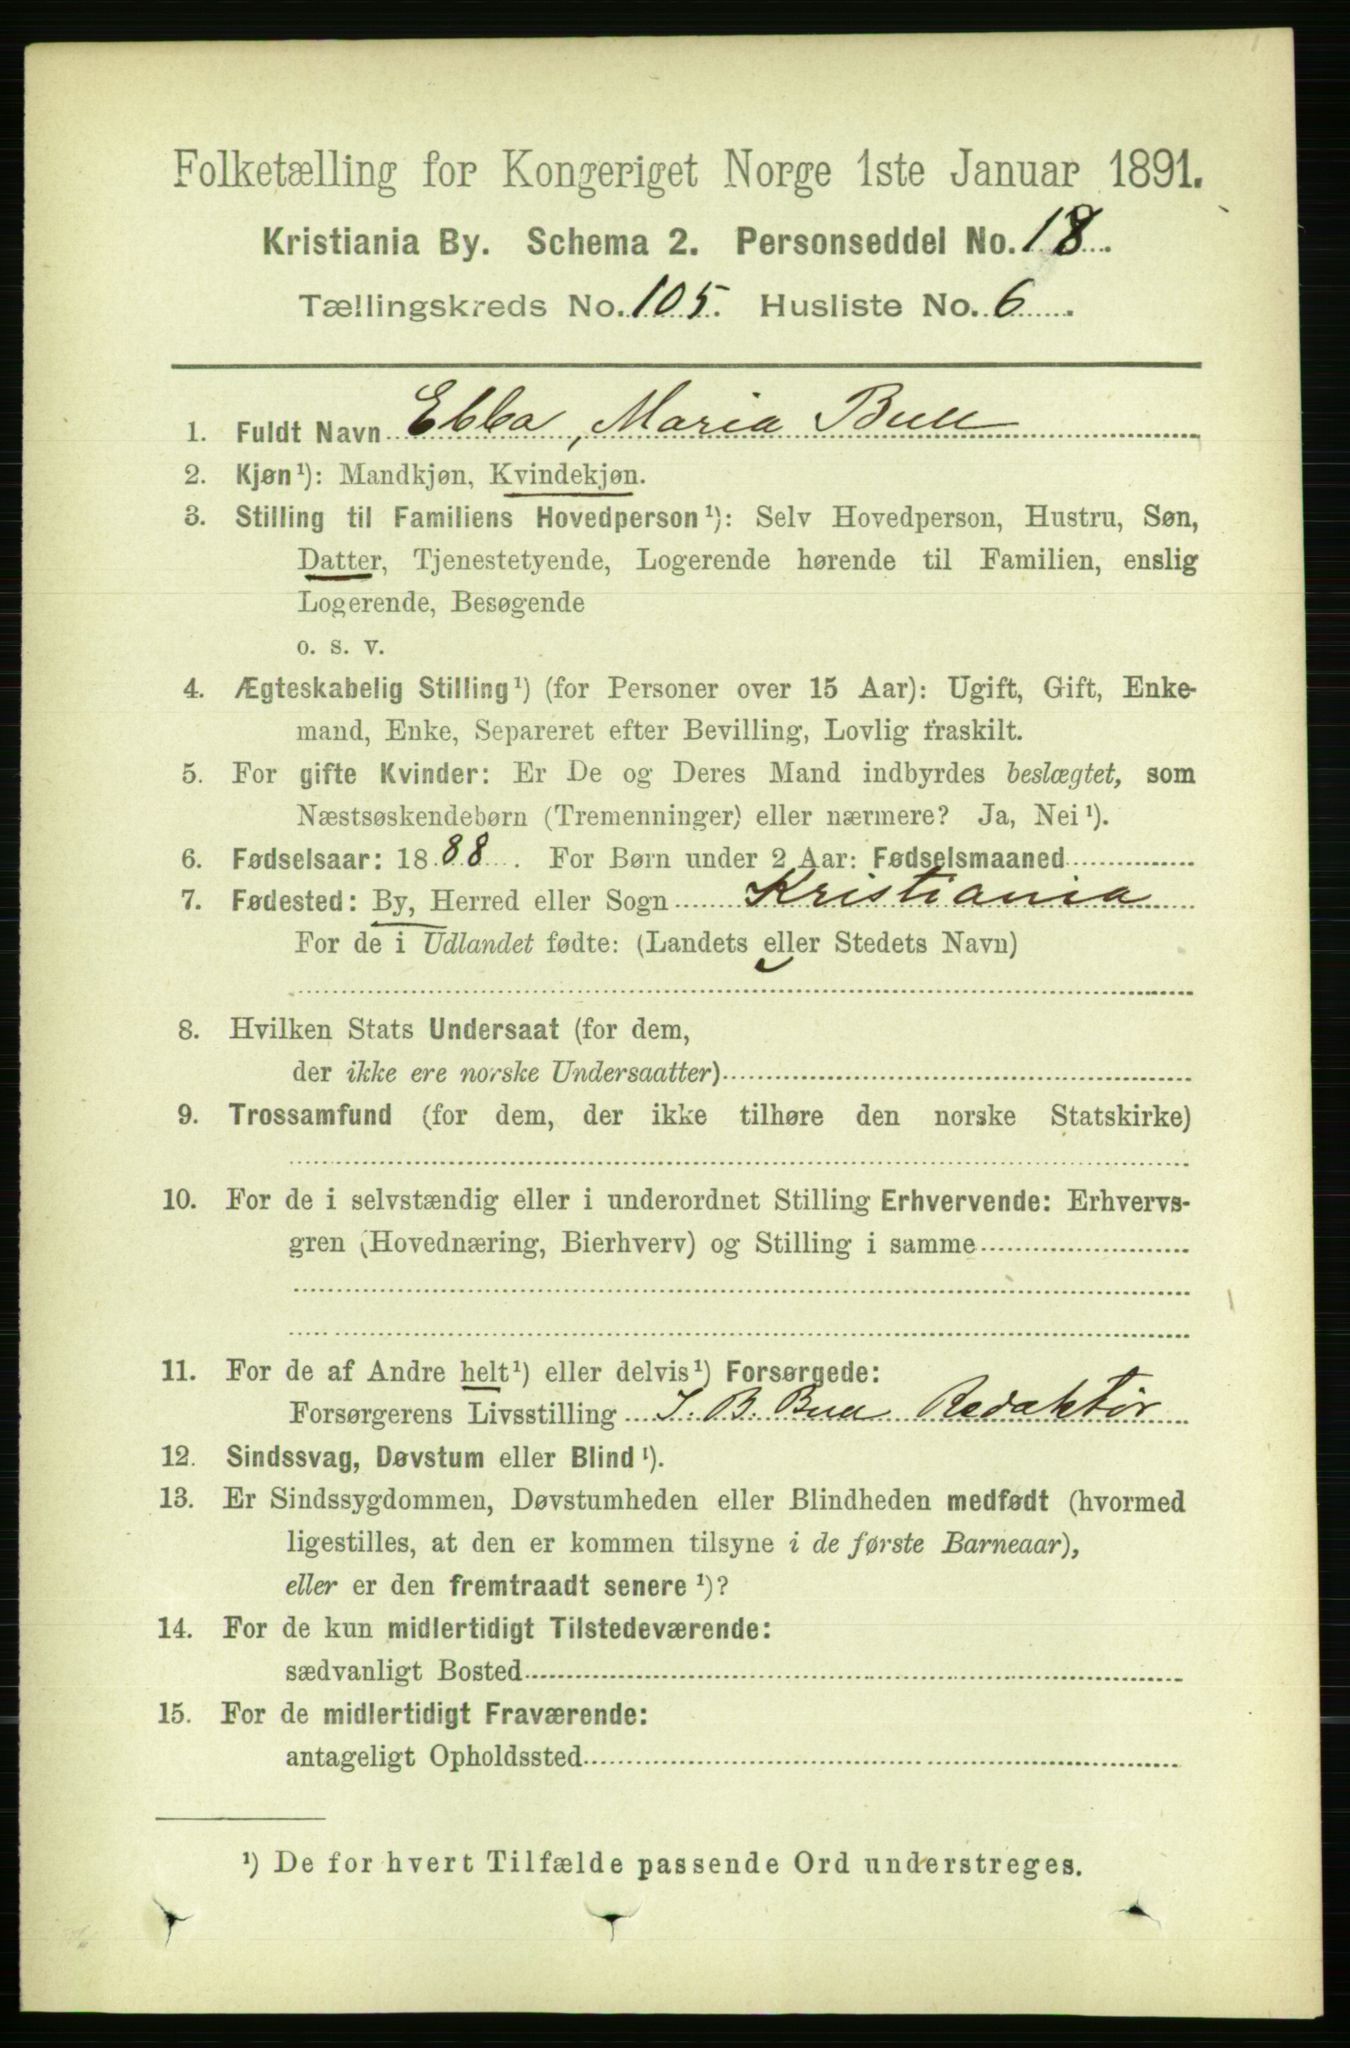 Folketælling for Kongeriget Norge 1ste Januar 1891.
Kristiania By. Schema 2. Personseddel No. 18.
Tællingskreds No. 105. Husliste No. 6.
1. Fuldt Navn Ebba, Maria Bull
2. Kjøn¹): Mandkjøn, Kvindekjøn.
3. Stilling til Familiens Hovedperson¹): Selv Hovedperson, Hustru, Søn,
Datter, Tjenestetyende, Logerende hørende til Familien, enslig
Logerende, Besøgende
o. s. v.
4. Ægteskabelig Stilling¹) (for Personer over 15 Aar): Ugift, Gift, Enke-
mand, Enke, Separeret efter Bevilling, Lovlig fraskilt.
5. For gifte Kvinder: Er De og Deres Mand indbyrdes beslægtet, som
Næstsøskendebørn (Tremenninger) eller nærmere? Ja, Nei¹).
6. Fødselsaar: 1888. For Børn under 2 Aar: Fødselsmaaned
7. Fødested: By, Herred eller Sogn Kristiania
For de i Udlandet fødte: (Landets eller Stedets Navn)
8. Hvilken Stats Undersaat (for dem,
der ikke ere norske Undersaatter)
9. Trossamfund (for dem, der ikke tilhøre den norske Statskirke)
10. For de i selvstændig eller i underordnet Stilling Erhvervende: Erhvervs-
gren (Hovednæring, Bierhverv) og Stilling i samme
11. For de af Andre helt¹) eller delvis¹) Forsørgede:
Forsørgerens Livsstilling J. B. Bull Redaktør
12. Sindssvag, Døvstum eller Blind¹).
13. Er Sindssygdommen, Døvstumheden eller Blindheden medfødt (hvormed
ligestilles, at den er kommen tilsyne i de første Barneaar),
eller er den fremtraadt senere¹)?
14. For de kun midlertidigt Tilstedeværende:
sædvanligt Bosted
15. For de midlertidigt Fraværende:
antageligt Opholdssted
¹) De for hvert Tilfælde passende Ord understreges.